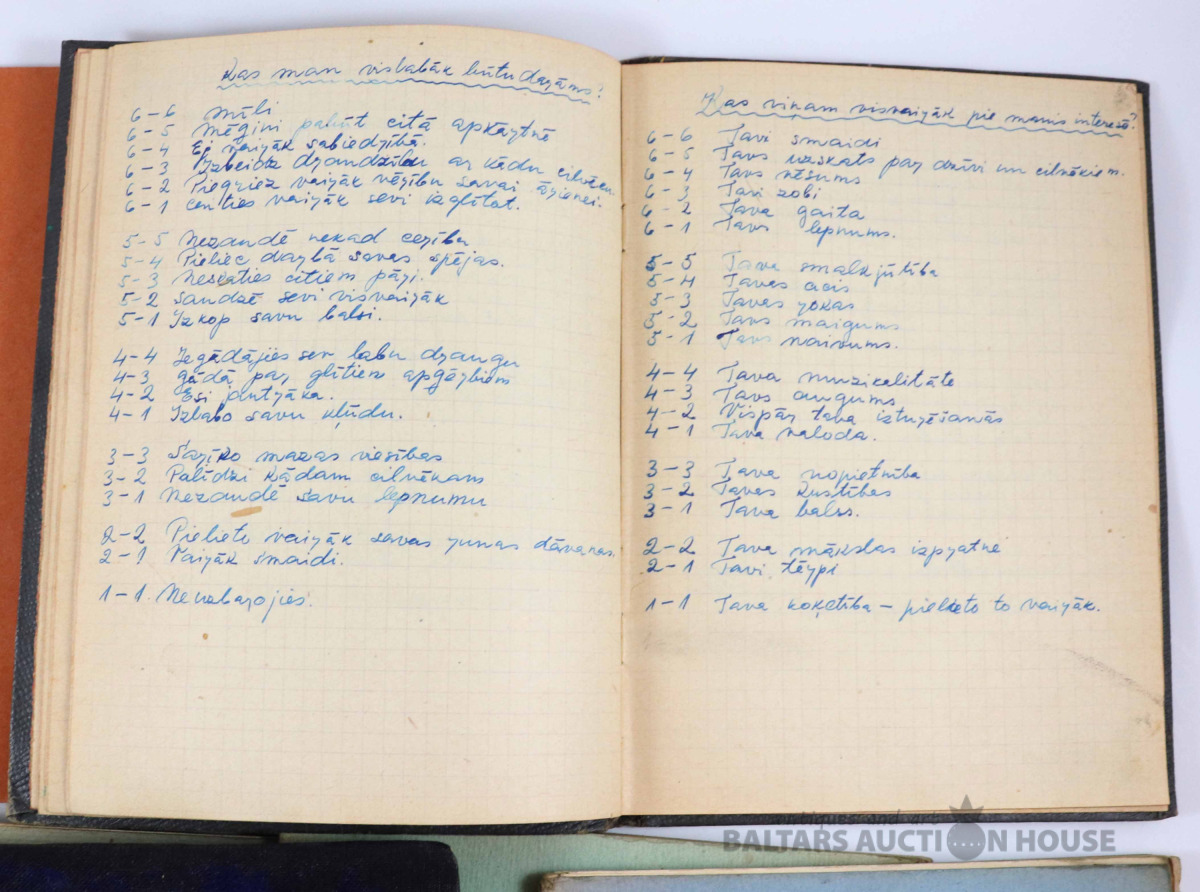 Kas man vislabāk būtu darāms?
6-6 mīli
6-5 Mēģini palūt citā apkārtnē
6-4 Ej vairāk sabiedrībā.
6-3 Izbeidz draudzību ar kādu cilvēku
6-2 Piegriez vairāk vērību savai ārienei.
6-1 centies vairāk sevi izglītot.
5-5 Nezaudē nekad cerību
5-4 Pieliec darbā savas spējas.
5-3 Neskaties citiem pāri.
5-2 Saudzē sevi visvairāk
5-1 Izkop savu balsi.
4-4 Iegādājies sev labu draugu
4-3 gādā par glītiem apģērbiem
4-2 Esi jautrāka.
4-1 Izlabo savu kļūdu.
3-3 Sarīko mazas viesības
3-2 Palīdzi kādam cilvēkam
3-1 Nezaudē savu lepnumu
2-2 Pielieto vairāk savas runas dāvanas.
2-1 Vairāk smaidi.
1-1. Nenobažojies.
Kas viņam visvairāk pie manis interesē?
6-6 Tavi smaidi
6-5 Tavs uzskats par dzīvi un cilvēkiem.
6-4 Tavs nēšums
6-3 Tavi zobi
6-2 Tava gaita
6-1 Tavs lepnums.
5-5 Tava smalkjūtība
5-4 Tavas acis
5-3 Tavas rokas
5-2 Tavs maigums
5-1 Tavs naivums.
4-4 Tava muzikalitāte
4-3 Tavs augums
4-2 Vispār tava izturēšanās
4-1 Tava valoda.
3-3 Tava nopietnība
3-2 Tavas kustības
3-1 Tava balss.
2-2 Tava mākslas izpratne
2-1 Tavi tērpi
1-1 Tava koķetība – pielieto to vairāk.
antiques and art
BALTARS AUCTION HOUSE